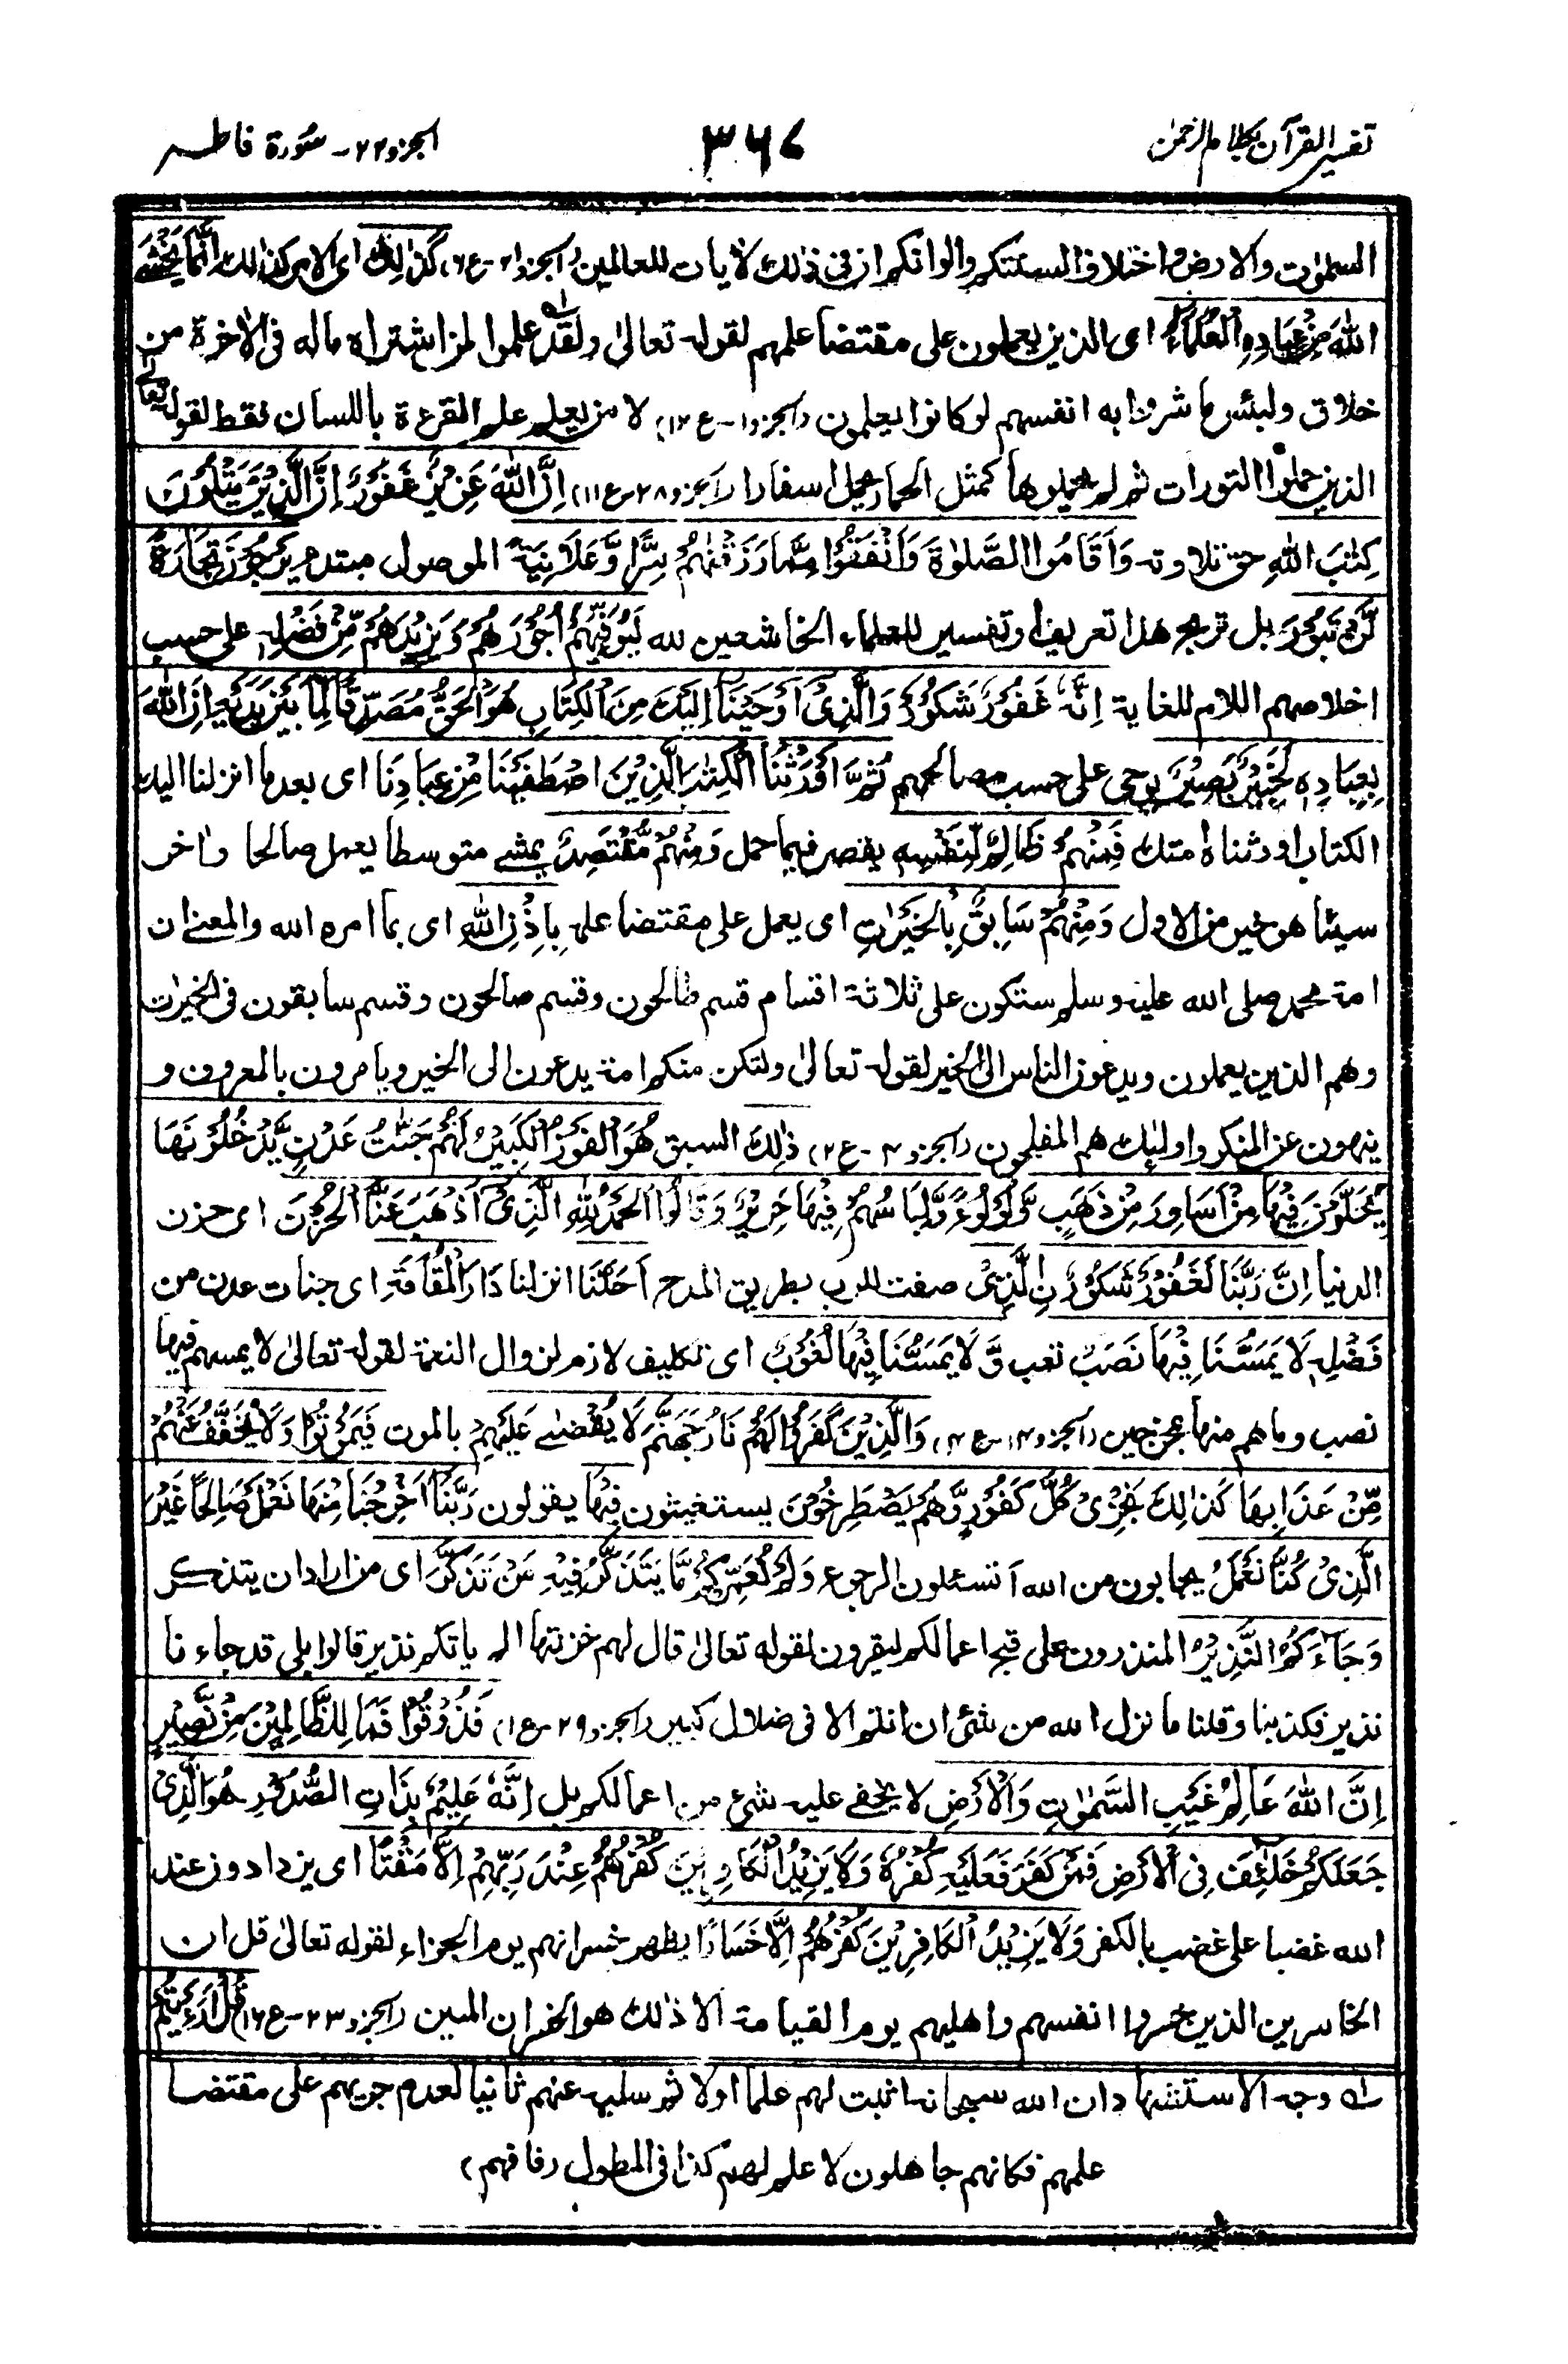 تفسير القرآن بكلام الرحمن
٣٦٧
الجزو٢٢ - سورة فاطر
السموت والارض واختلاف السنتكم والوانكم ان في ذلك لايات للعالمين (الجزو٢١-ع٦) كَذٰلِكَ اى الامر كذلك اِنَّمَا يَخْشَى
اللّٰهَ مِنْ عِبَادِهِ الْعُلَمٰٓؤُا اى الذين يعملون على مقتضا علمهم لقوله تعالىٰ ولقد لـه علموا لمن اشتراه ماله فى الاخرة من
خلاق ولبئس ما شروا به انفسهم لو كانوا يعلمون (الجزو١-ع١٢) لا من يعلم علم القرءة باللسان فقط لقوله تعالى
الذين حملوا التورات ثم لم يحملوها كمثل الحمار يحمل اسفارا (الجزو٢٨-ع١١) اِنَّ اللّٰهَ عَزِيْزٌ غَفُوْرٌ اِنَّ الَّذِيْنَ يَتْلُوْنَ
كِتٰبَ اللّٰهِ حق تلاوته وَاَقَامُوا الصَّلٰوةَ وَاَنْفَقُوْا مِمَّا رَزَقْنٰهُمْ سِرًّا وَّعَلَانِيَةً الموصول مبتدء يَرْجُوْنَ تِجَارَةً
لَّنْ تَبُوْرَ بل تربح هذا تعريف او تفسير للعلماء الخاشعين لله لِيُوَفِّيَهُمْ اُجُوْرَهُمْ وَيَزِيْدَهُمْ مِّنْ فَضْلِهٖ على حسب
اخلاصهم اللام للغاية اِنَّهٗ غَفُوْرٌ شَكُوْرٌ وَالَّذِىْ اَوْحَيْنَآ اِلَيْكَ مِنَ الْكِتَابِ هُوَ الْحَقُّ مُصَدِّقًا لِّمَا بَيْنَ يَدَيْهِ اِنَّ اللّٰهَ
بِعِبَادِهٖ لَخَبِيْرٌ بَصِيْرٌ يوحى على حسب مصالحهم ثُمَّ اَوْرَثْنَا الْكِتٰبَ الَّذِيْنَ اصْطَفَيْنَا مِنْ عِبَادِنَا اى بعد ما انزلنا اليك
الكتاب اورثناه امتك فَمِنْهُمْ ظَالِمٌ لِّنَفْسِهٖ يقصر فيما حمل وَمِنْهُمْ مُّقْتَصِدٌ يمشے متوسطا يعمل صالحا واٰخر
سيئا هو خير من الاول وَمِنْهُمْ سَابِقٌۢ بِالْخَيْرٰتِ اى يعمل على مقتضا علمه بِاِذْنِ اللّٰهِ اى بما امره الله والمعنے ان
امة محمد صلى الله عليه وسلم ستكون على ثلاثة اقسام قسم طالحون وقسم صالحون وقسم سابقون فى الخيرات
وهم الذين يعملون ويدعون الناس الى الخير لقوله تعالىٰ ولتكن منكم امة يدعون الى الخير ويامرون بالمعروف و
ينهون عن المنكر واولئك هم المفلحون (الجزو٤-ع٢) ذٰلِكَ السبق هُوَ الْفَوْزُ الْكَبِيْرُ لَهُمْ جَنّٰتُ عَدْنٍ يَّدْخُلُوْنَهَا
يُحَلَّوْنَ فِيْهَا مِنْ اَسَاوِرَ مِنْ ذَهَبٍ وَّلُؤْلُؤًا وَّلِبَاسُهُمْ فِيْهَا حَرِيْرٌ وَقَالُوا الْحَمْدُ لِلّٰهِ الَّذِىْٓ اَذْهَبَ عَنَّا الْحُزْنَ اى حزن
الدنيا اِنَّ رَبَّنَا لَغَفُوْرٌ شَكُوْرُ نِ الَّذِىْٓ صفت للرب بطريق المدح اَحَلَّنَا انزلنا دَارَ الْمُقَامَةِ اى جنات عدن من
فَضْلِهٖ لَا يَمَسُّنَا فِيْهَا نَصَبٌ تعب وَّلَا يَمَسُّنَا فِيْهَا لُغُوْبٌ اى تكليف لازم لزوال النعمة لقوله تعالىٰ لا يمسهم فيها
نصب وما هم منها بمخرجين (الجزو١٤-ع٤) وَالَّذِيْنَ كَفَرُوْا لَهُمْ نَارُ جَهَنَّمَ لَا يُقْضٰے عَلَيْهِمْ بالموت فَيَمُوْتُوْا وَلَا يُخَفَّفُ عَنْهُمْ
مِّنْ عَذَابِهَا كَذٰلِكَ نَجْزِىْ كُلَّ كَفُوْرٍ وَّهُمْ يَصْطَرِخُوْنَ يستغيثون فِيْهَا يقولون رَبَّنَآ اَخْرِجْنَا مِنْهَا نَعْمَلْ صَالِحًا غَيْرَ
الَّذِىْ كُنَّا نَعْمَلُ يجابون من الله اَتسئلون الرجوع وَلَمْ نُعَمِّرْكُمْ مَّا يَتَذَكَّرُ فِيْهِ مَنْ تَذَكَّرَ اى من اراد ان يتذكر
وَجَآءَكُمُ النَّذِيْرُ المنذرون على قبح اعمالكم ليقرون لقوله تعالىٰ قال لهم خزنتها الم ياتكم نذير قالوا بلى قد جاءنا
نذير فكذبنا وقلنا ما نزل الله من شئ ان انتم الا فى ضلال كبير (الجزو٢٩-ع١) فَذُوْقُوْا فَمَا لِلظَّالِمِيْنَ مِنْ نَّصِيْرٍ
اِنَّ اللّٰهَ عَالِمُ غَيْبِ السَّمٰوٰتِ وَالْاَرْضِ لا يخفے عليه شئ من اعمالكم بل اِنَّهٗ عَلِيْمٌۢ بِذَاتِ الصُّدُوْرِ هُوَ الَّذِىْ
جَعَلَكُمْ خَلٰٓئِفَ فِى الْاَرْضِ فَمَنْ كَفَرَ فَعَلَيْهِ كُفْرُهٗ وَلَا يَزِيْدُ الْكَافِرِيْنَ كُفْرُهُمْ عِنْدَ رَبِّهِمْ اِلَّا مَقْتًا اى يزدادون عند
الله غضبا على غضب بالكفر وَلَا يَزِيْدُ الْكَافِرِيْنَ كُفْرُهُمْ اِلَّا خَسَارًا يظهر خسرانهم يوم الجزاء لقوله تعالىٰ قل ان
الخاسرين الذين خسروا انفسهم واهليهم يوم القيامة الا ذٰلك هو الخسران المبين (الجزو٢٣-ع١٦) قُلْ اَرَءَيْتُمْ
لـه وجه الاستشهاد ان الله سبحانه اثبت لهم علما اولا ثم سلبه عنهم ثانيا لعدم جريهم على مقتضا
علمهم فكانهم جاهلون لا علم لهم كذا فى المطول (فافهم)